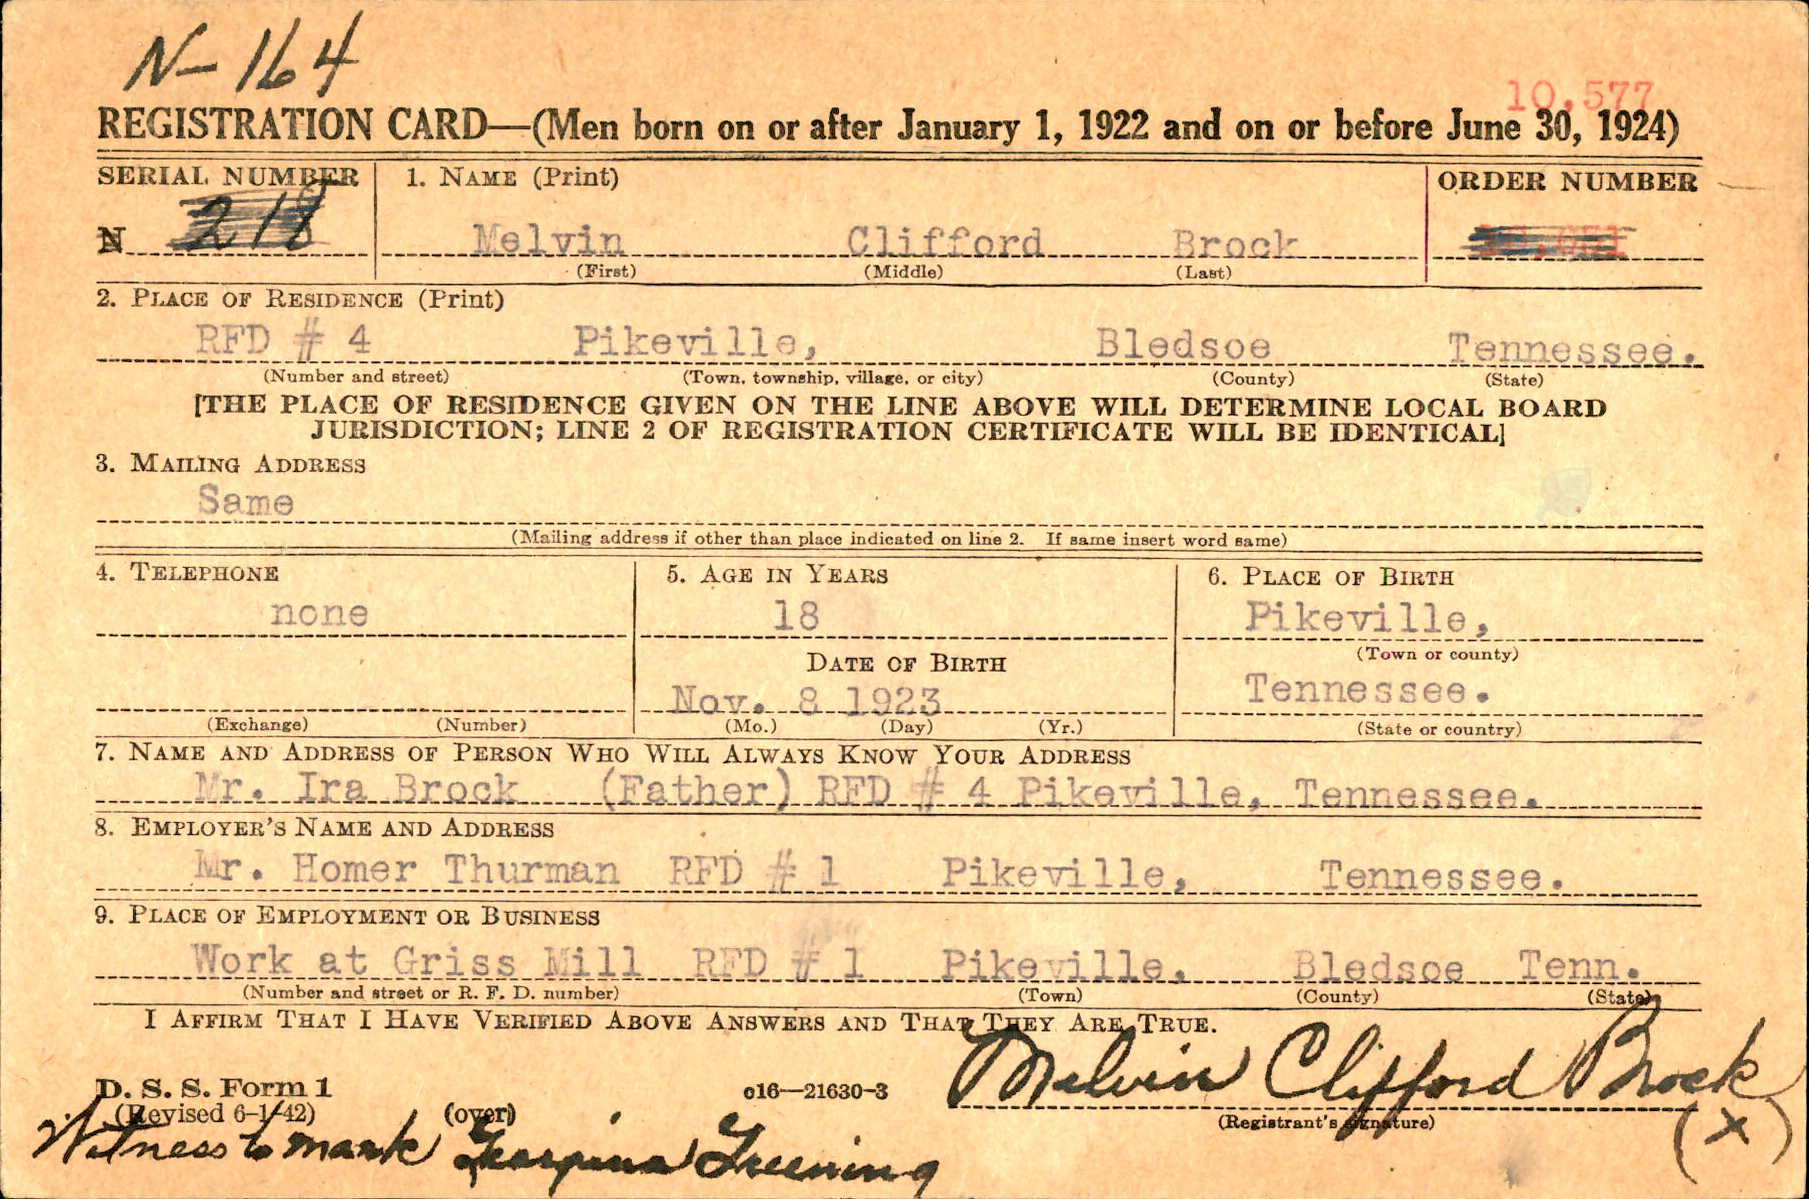 N-164
10,577
REGISTRATION CARD—(Men born on or after January 1, 1922 and on or before June 30, 1924)
SERIAL NUMBER
1. NAME (Print)
ORDER NUMBER
N
Melvin Clifford Brock
(First) (Middle) (Last)
2. PLACE OF RESIDENCE (Print)
RFD # 4 Pikeville, Bledsoe Tennessee.
(Number and street) (Town, township, village, or city) (County) (State)
[THE PLACE OF RESIDENCE GIVEN ON THE LINE ABOVE WILL DETERMINE LOCAL BOARD
JURISDICTION; LINE 2 OF REGISTRATION CERTIFICATE WILL BE IDENTICAL]
3. MAILING ADDRESS
Same
(Mailing address if other than place indicated on line 2. If same insert word same)
4. TELEPHONE
none
(Exchange) (Number)
5. AGE IN YEARS
18
DATE OF BIRTH
Nov. 8 1923
(Mo.) (Day) (Yr.)
6. PLACE OF BIRTH
Pikeville,
(Town or county)
Tennessee.
(State or country)
7. NAME AND ADDRESS OF PERSON WHO WILL ALWAYS KNOW YOUR ADDRESS
Mr. Ira Brock (Father) RFD # 4 Pikeville, Tennessee.
8. EMPLOYER'S NAME AND ADDRESS
Mr. Homer Thurman RFD # 1 Pikeville, Tennessee.
9. PLACE OF EMPLOYMENT OR BUSINESS
Work at Griss Mill RFD # 1 Pikeville, Bledsoe Tenn.
(Number and street or R. F. D. number) (Town) (County) (State)
I AFFIRM THAT I HAVE VERIFIED ABOVE ANSWERS AND THAT THEY ARE TRUE.
Melvin Clifford Brock
(Registrant's signature)
(X)
D. S. S. Form 1
(Revised 6-1-42) (over)
c16—21630-3
Witness to mark